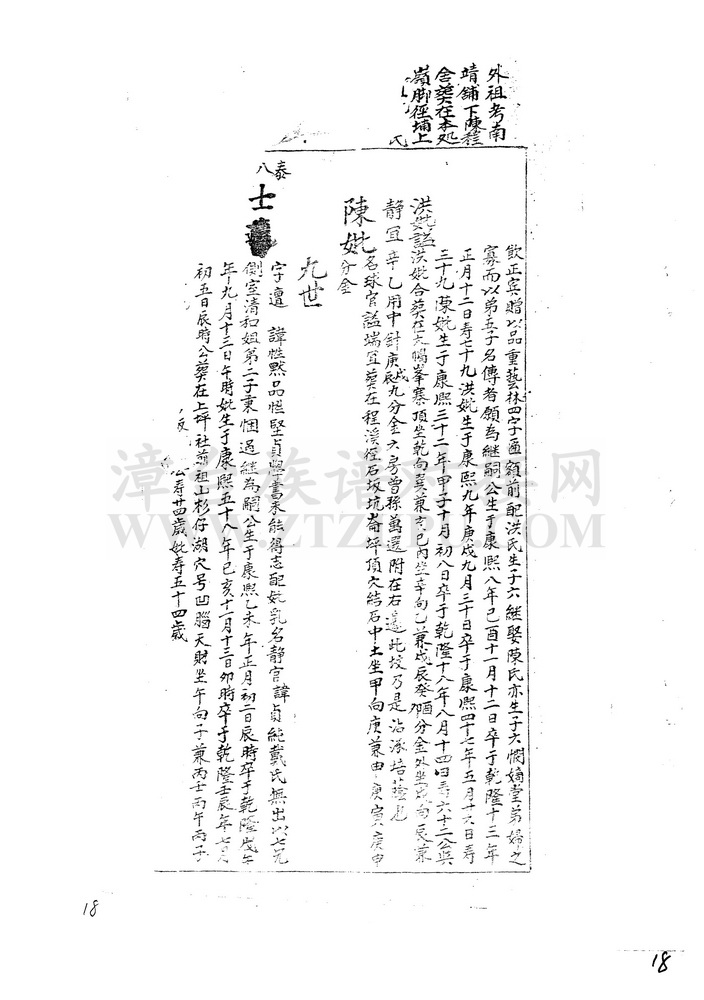 外祖考南
靖舖下陳耘
舍葬在本处
嶺脚徑埔上
氏
飲正賓贈以品重藝林四字匾額前配洪氏生子六継娶陳氏亦生子六憫嫡堂弟婦之
寡而以弟五子名傳者願為継嗣公生于康熙八年己酉十一月十二日卒于乾隆十三年
正月十二日寿七十九洪妣生于康熙九年庚戌九月三十日卒于康熙四十七年五月十六日寿
三十九陳妣生于康熙三十二年甲子十月初八日卒于乾隆十八年八月十四日寿六十二公與
洪妣謚洪妣合葬在大鵬峯寨頂坐乾向巽兼亥巳内坐辛向乙兼戌辰癸酉分金外坐戌向辰兼
静宜辛乙用中針庚戌庚辰九分金六房曾孫萬選附在右邊此坟乃是沾涿培蔭也
陳妣名球官謚端宜葬在程溪徑石坂坑崙坪頂穴結石中土坐甲向庚兼申庚寅庚申
分金
九世
泰
八
士
字遵 諱性黙品性堅貞學書未能得志配妣乳名静官諱貞純戴氏無出以七兄
側室清和姐第二子秉悃過継為嗣公生于康熙乙未年正月初二日辰時卒于乾隆戊午
年九月十三日午時妣生于康熙五十八年己亥十一月十三日卯時卒于乾隆壬辰年七月
初五日辰時公葬在上坪社前祖山杉仔湖穴号凹腦天財坐午向子兼丙壬丙午丙子
公寿廿四歲妣寿五十四歲
漳州族谱 网
WWW.ZTZ
18
18